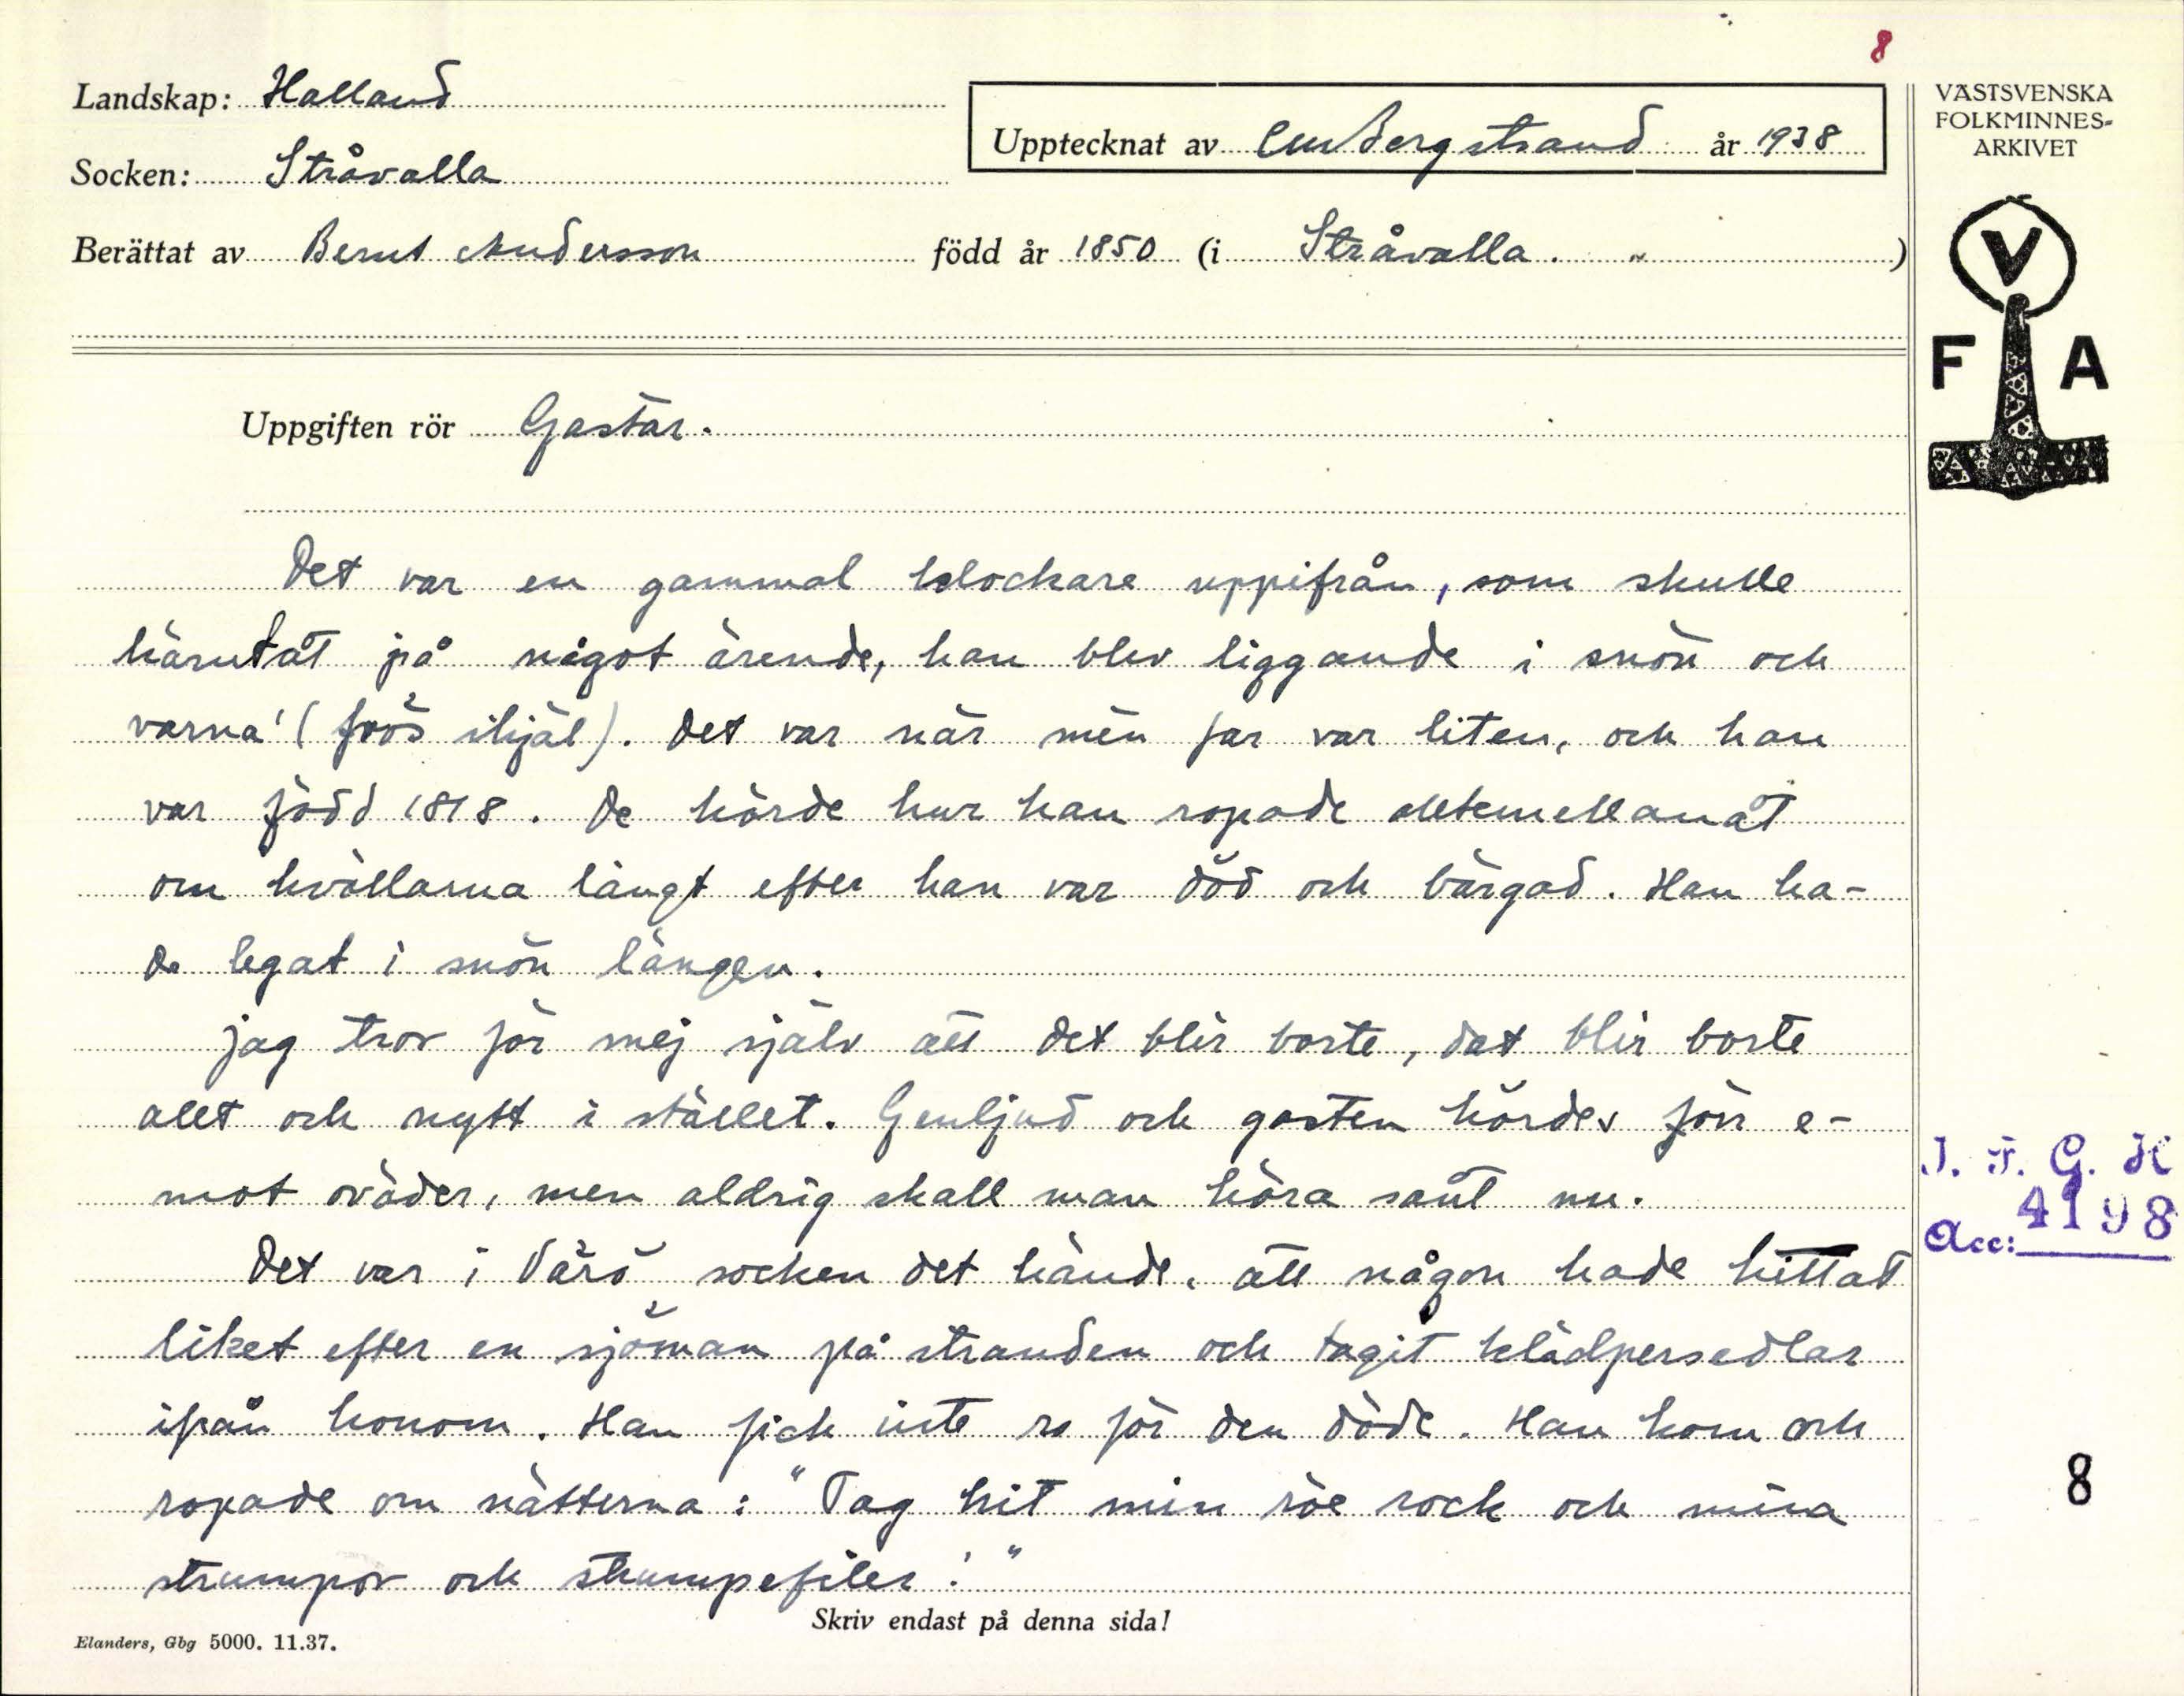 8
Landskap: Halland
Upptecknat av C.M. Bergstrand år 1938
Socken: Stråvalla
Berättat av Bernt Andersson född år 1850 (i Stråvalla. )
Uppgiften rör Gastar.
Det var en gammal klockare uppifrån, som skulle
härutåt på något ärende, han blev liggande i snön och
varna' (frös ihjäl). Det var när min far var liten, och han
var född 1818. De hörde hur han ropade alltemellanåt
om kvällarna långt efter han var död och bärgad. Han ha-
de legat i snön längen.
jag tror för mej själv att det blir borte, det blir borte
allt och nytt i stället. Genljud och gasten hördes förr e-
mot oväder, men aldrig skall man höra sånt nu.
Det var i Värö socken det hände, att någon hade hittat
liket efter en sjöman på stranden och tagit klädpersedlar
ifrån honom. Han fick inte ro för den döde. Han kom och
ropade om nätterna: "Tag hit min röe rock och mina
strumpor och strumpefiler!"
Skriv endast på denna sida!
Elanders, Gbg 5000. 11.37.
VÄSTSVENSKA
FOLKMINNES-
ARKIVET
V
F A
I. F. G. H
4198
Acc:
8